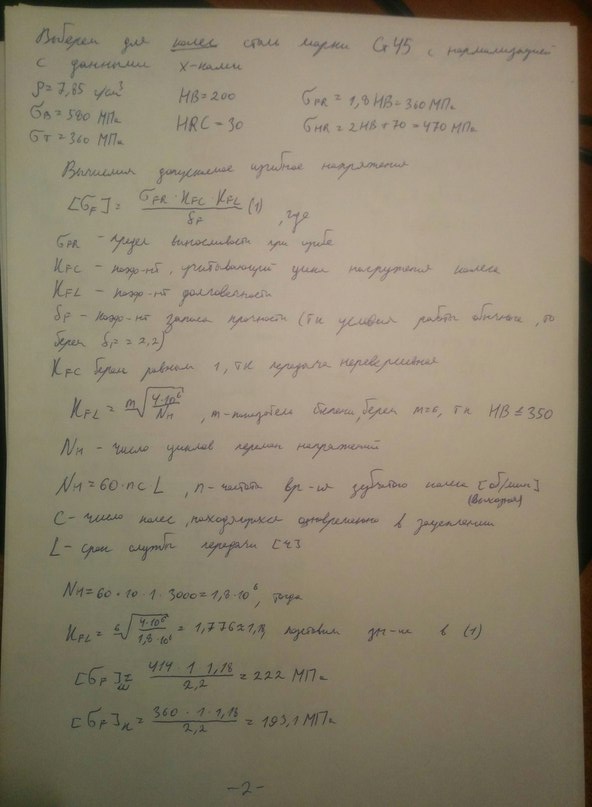 Выберем для колес сталь марки Ст45 с нормализацией
с данными х-ками
ρ=7,85 г/см³ HB=200 σFR=1,8HB=360 МПа
σв=580 МПа HRC=30 σHR=2HB+70=470 МПа
σт=360 МПа
Вычислим допускаемое изгибное напряжения
[σF]= σFR·KFC·KFL / δF (1) , где
σFR - предел выносливости при изгибе
KFC - коэф-нт, учитывающий цикл нагружения колеса
KFL - коэф-нт долговечности
δF - коэф-нт запаса прочности (т к условия работы обычные, то
берем δF=2,2)
KFC берем равным 1, т к передача нереверсивная
KFL = m√(4·10⁶ / NH) , m-показатель степени, берем m=6, т к HB≤350
NH - число циклов перемен напряжений
NH=60·n·c·L , n-частота вр-ия зубчатого колеса [об/мин]
(выходная)
C - число колес, находящихся одновременно в зацеплении
L - срок службы передачи [ч]
NH=60·10·1·3000=1,8·10⁶, тогда
KFL= 6√(4·10⁶ / 1,8·10⁶) = подставим зн-ие в (1)
[σF]ш = 414·1·1,18 / 2,2 = 222 МПа
[σF]к = 360·1·1,18 / 2,2 = 193,1 МПа
-2-